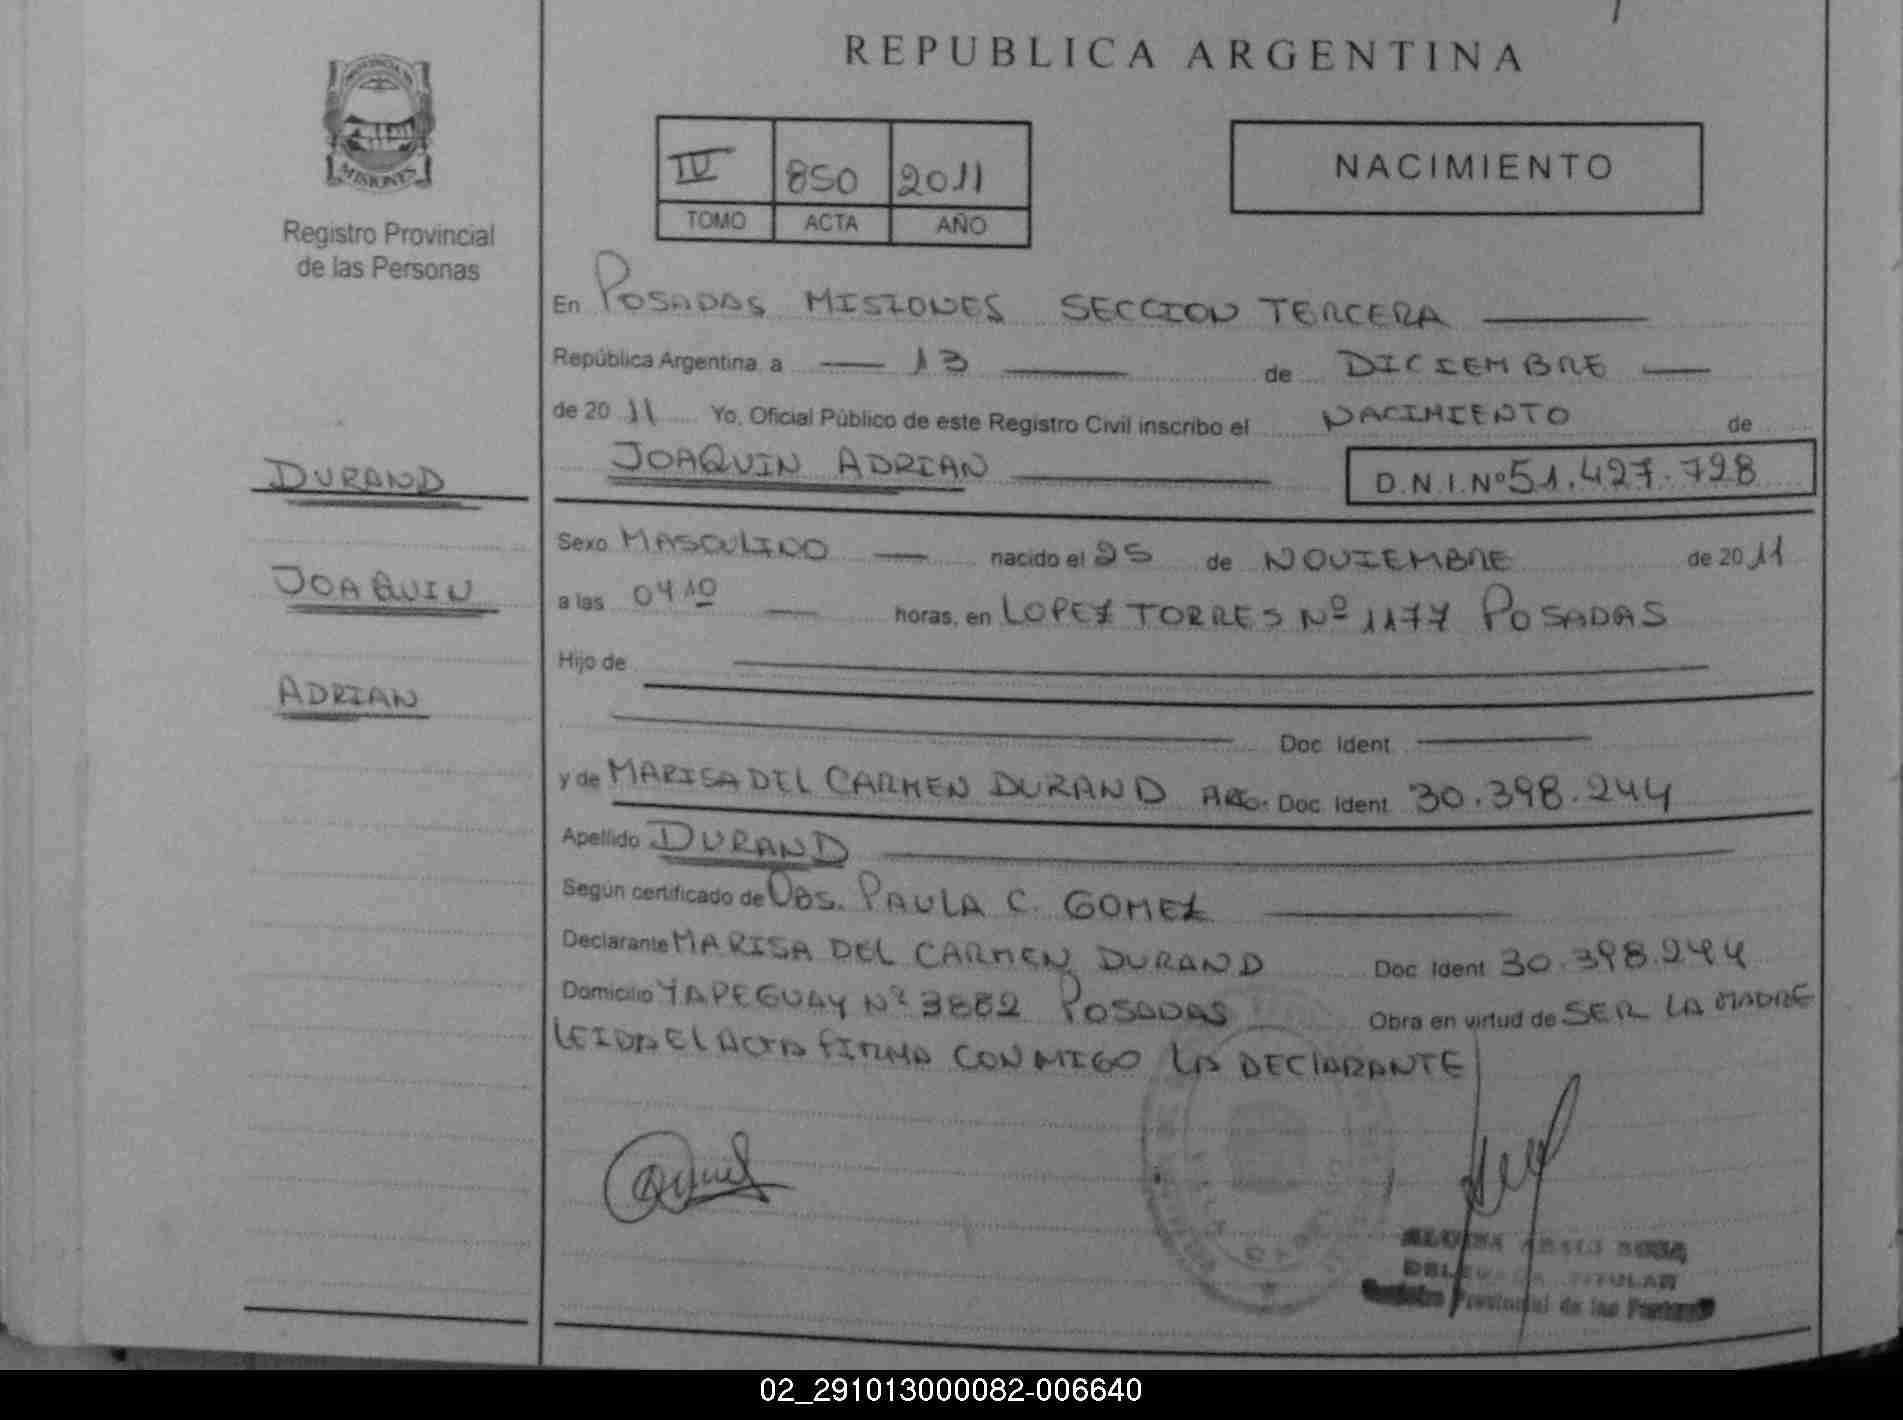 REPUBLICA ARGENTINA
PROVINCIA DE
MISIONES
Registro Provincial
de las Personas
IV 850 2011
TOMO ACTA AÑO
NACIMIENTO
En POSADAS MISIONES SECCION TERCERA
República Argentina a 13 de DICIEMBRE
de 2011 Yo, Oficial Público de este Registro Civil inscribo el NACIMIENTO de
JOAQUIN ADRIAN D.N.I.Nº 51.427.798
DURAND
JOAQUIN
ADRIAN
Sexo MASCULINO nacido el 25 de NOVIEMBRE de 2011
a las 0410 horas, en LOPEZ TORRES Nº 1177 POSADAS
Hijo de
Doc. Ident.
y de MARISA DEL CARMEN DURAND ARG. Doc. Ident. 30.398.244
Apellido DURAND
Según certificado de OBS. PAULA C. GOMEZ
Declarante MARISA DEL CARMEN DURAND Doc. Ident. 30.398.244
Domicilio YAPEGUAY Nº 3882 POSADAS Obra en virtud de SER LA MADRE
LEIDA EL ACTA FIRMA CONMIGO LA DECLARANTE
SOSA
DELEGADA TITULAR
Registro Provincial de las Personas
02_291013000082-006640